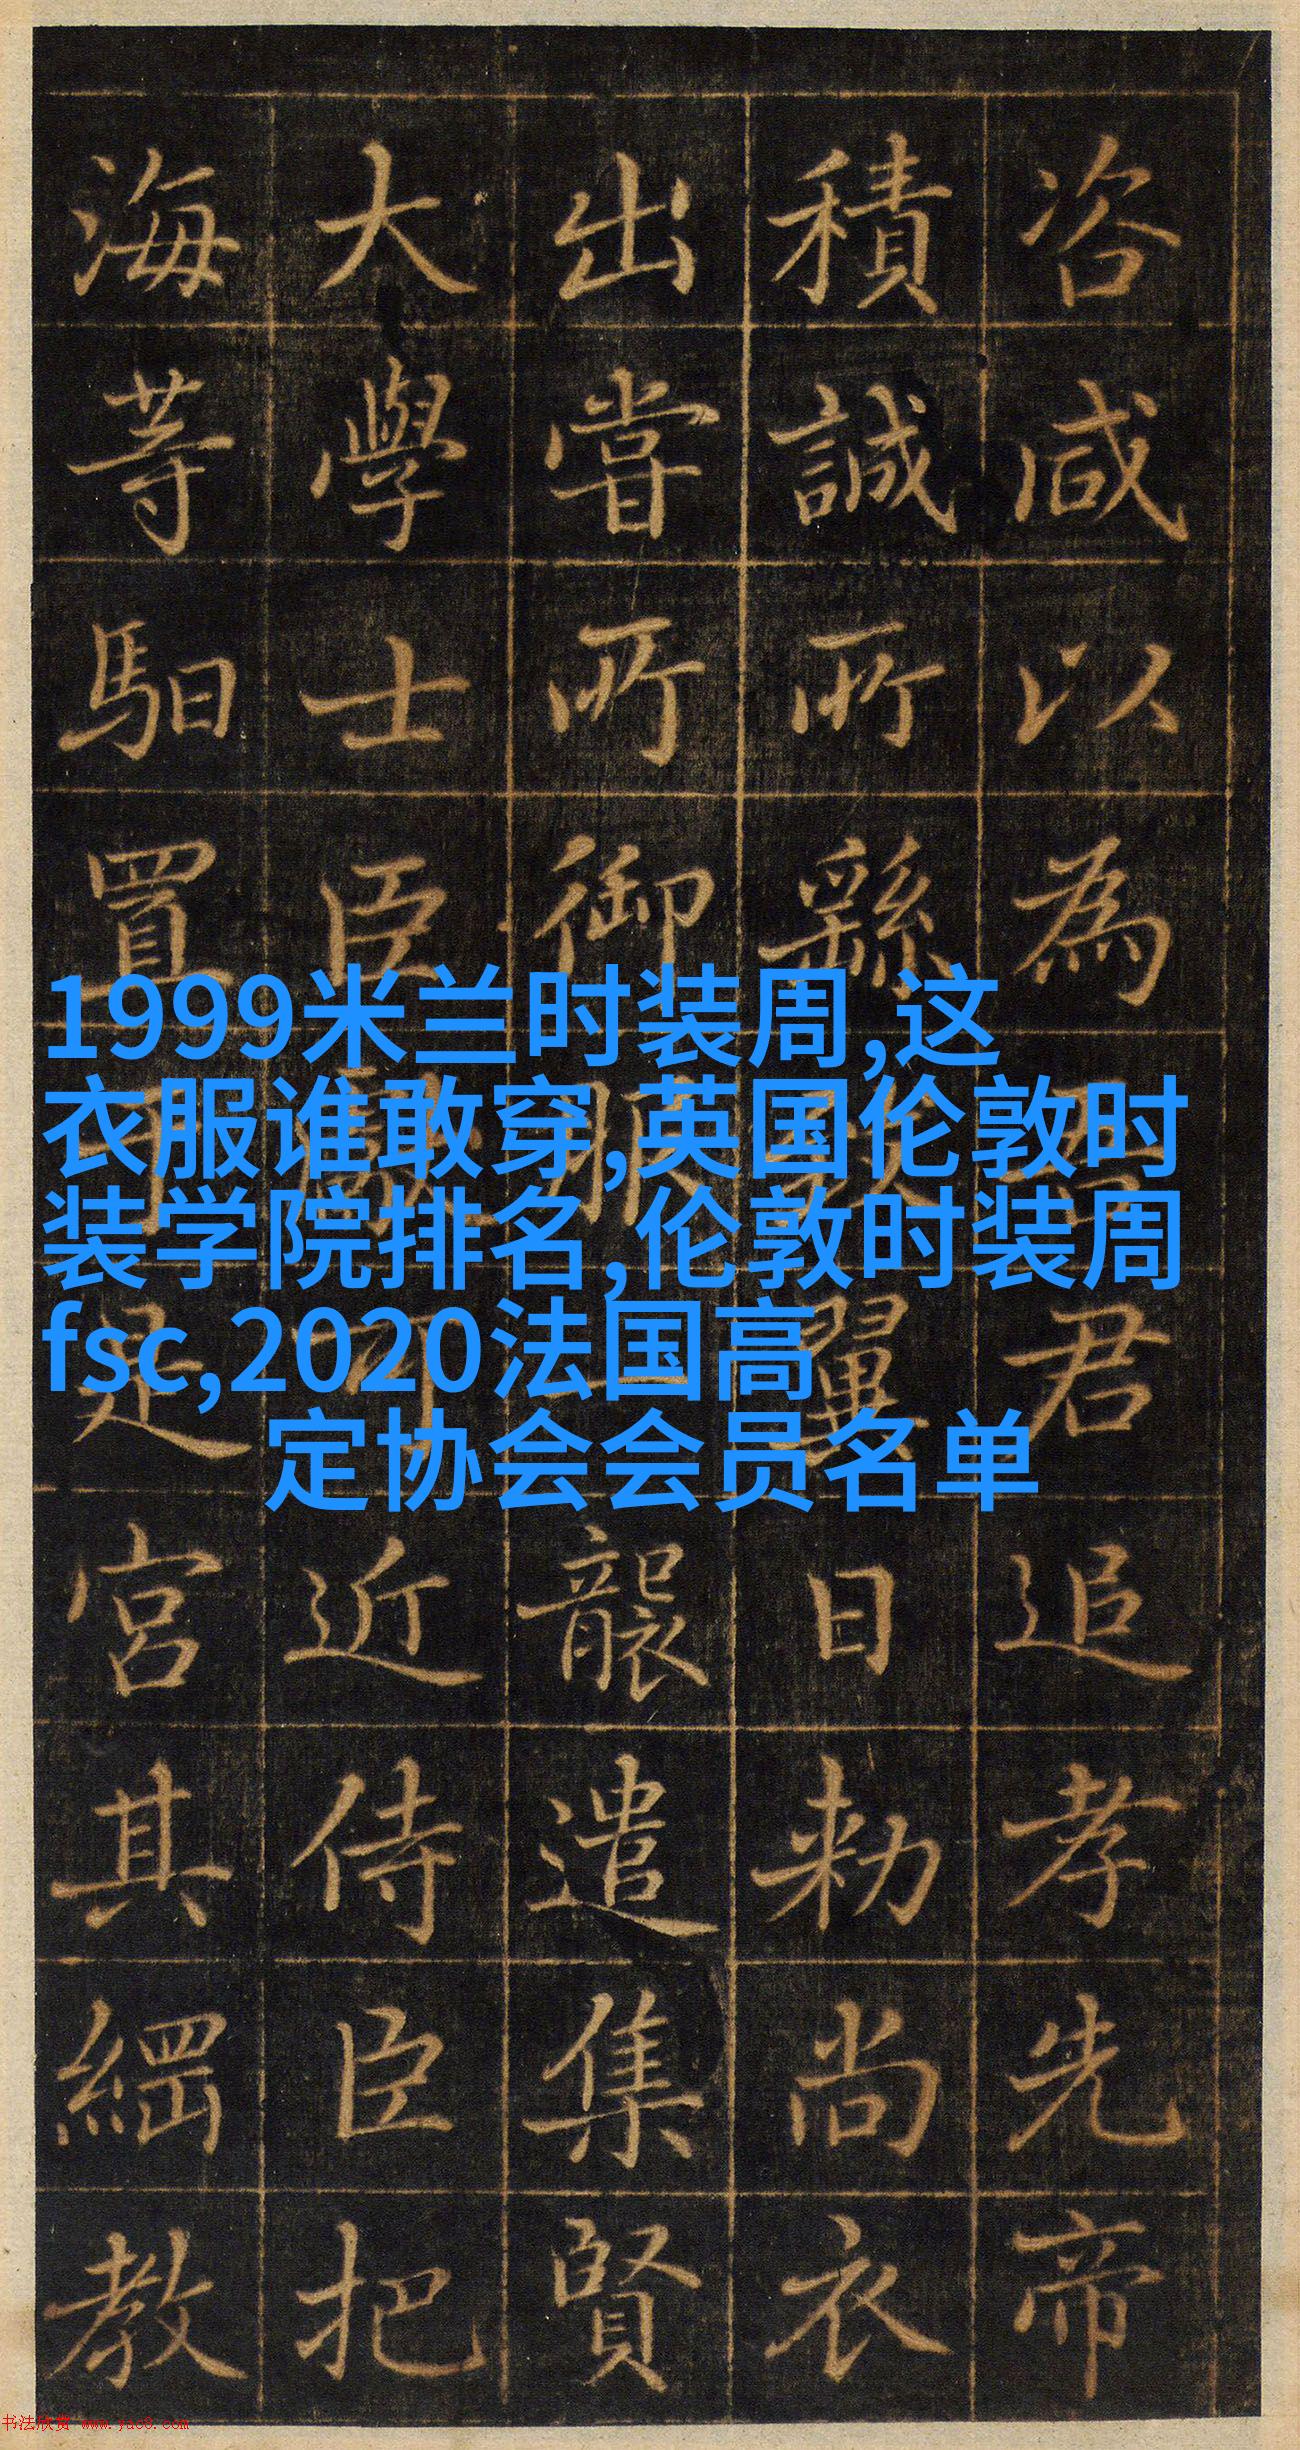 咨咸以為君追孝先帝
積誠所繇翼日勑尚衣
出嘗所御服一襲遣集賢
大學士臣近侍臣把
海等馹置是宮其綱教
1999米兰时装周,这
衣服谁敢穿,英国伦敦时
装学院排名,伦敦时装周
fsc,2020法国高
定协会会员名单
书法欣赏 www.yac8.com